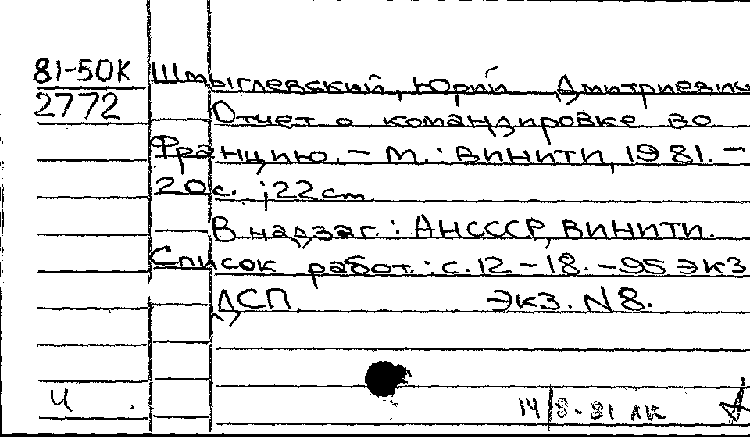 81-50К Шмыглевский, Юрий Дмитриевич
2772 Отчет о командировке во
Францию. – М.: ВИНИТИ, 1981. –
20 с. ; 22 cm
В надзаг: АНСССР, ВИНИТИ.
Список работ.: с. 12 – 18. – 95 экз
ДСП экз. N 8.
Ч 14/8-81 ЛК